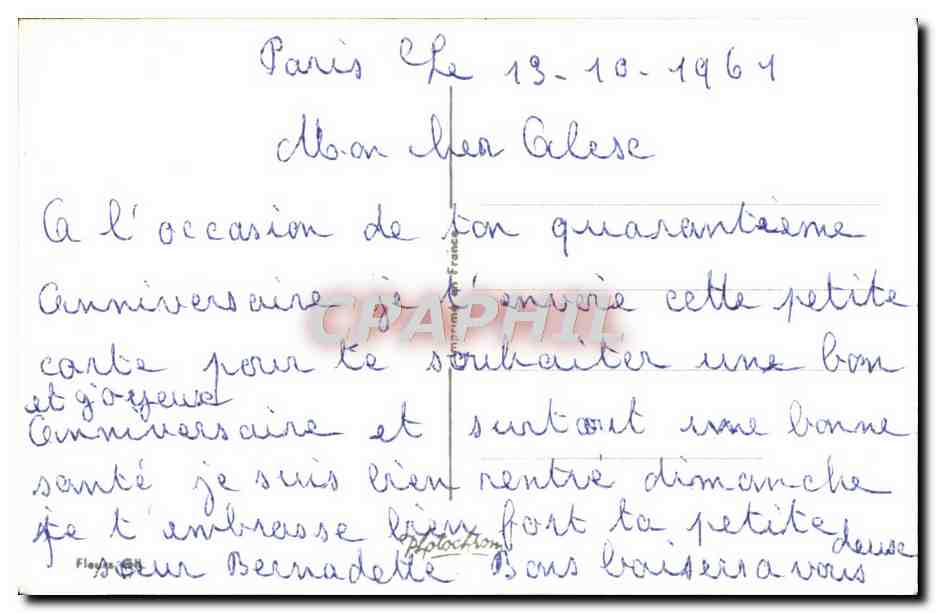 Paris le 13-10-1961
Mon cher Alexe
A l'occasion de ton quarantième
anniversaire je t'envoie cette petite
carte pour te souhaiter une bon
et joyeux
anniversaire et surtout une bonne
santé je suis bien rentré dimanche
je t'embrasse bien fort ta petite
soeur Bernadette Bons baisers a vous
deux
Imprimé en France
photochrom
Fleurs
CPAPHIL